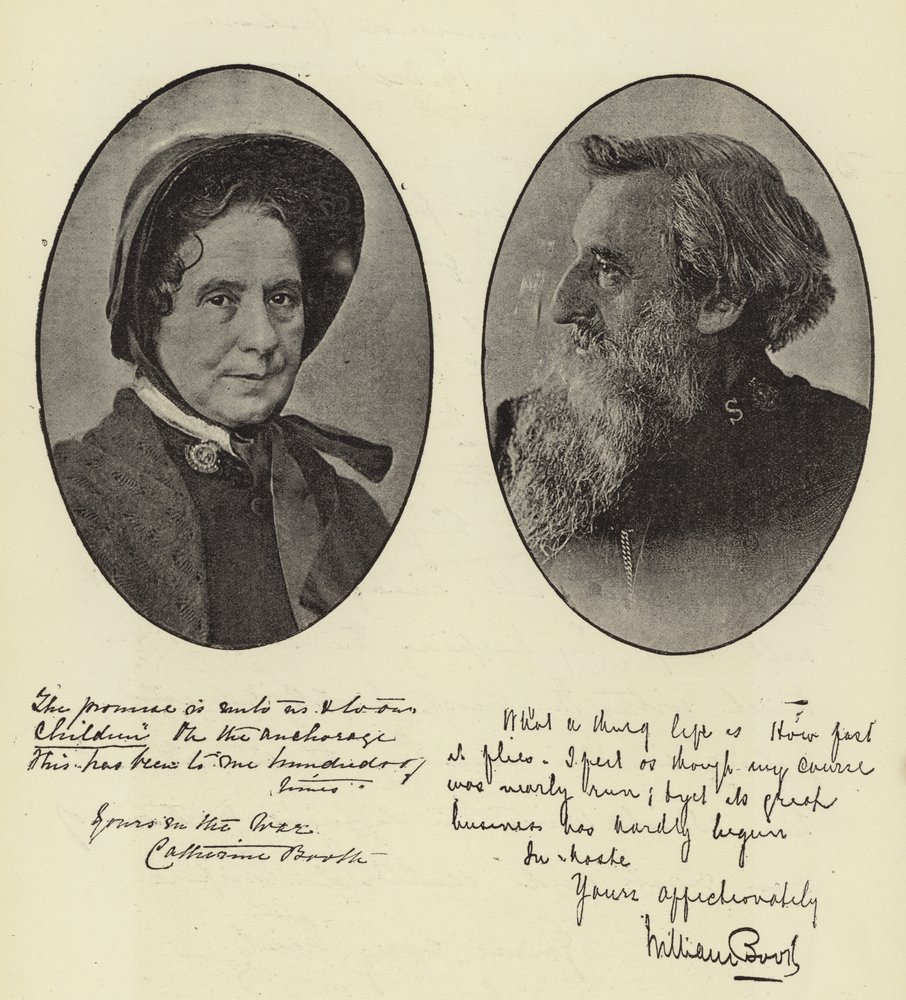 The promise is unto us & to our
Children" Oh the anchorage
this has been to me hundreds of
times"
Yours in the War.
Catherine Booth
What a thing life is How fast
it flies. I feel as though my course
was nearly run; & yet its great
business has hardly begun
In haste
Yours affectionately
William Booth
S